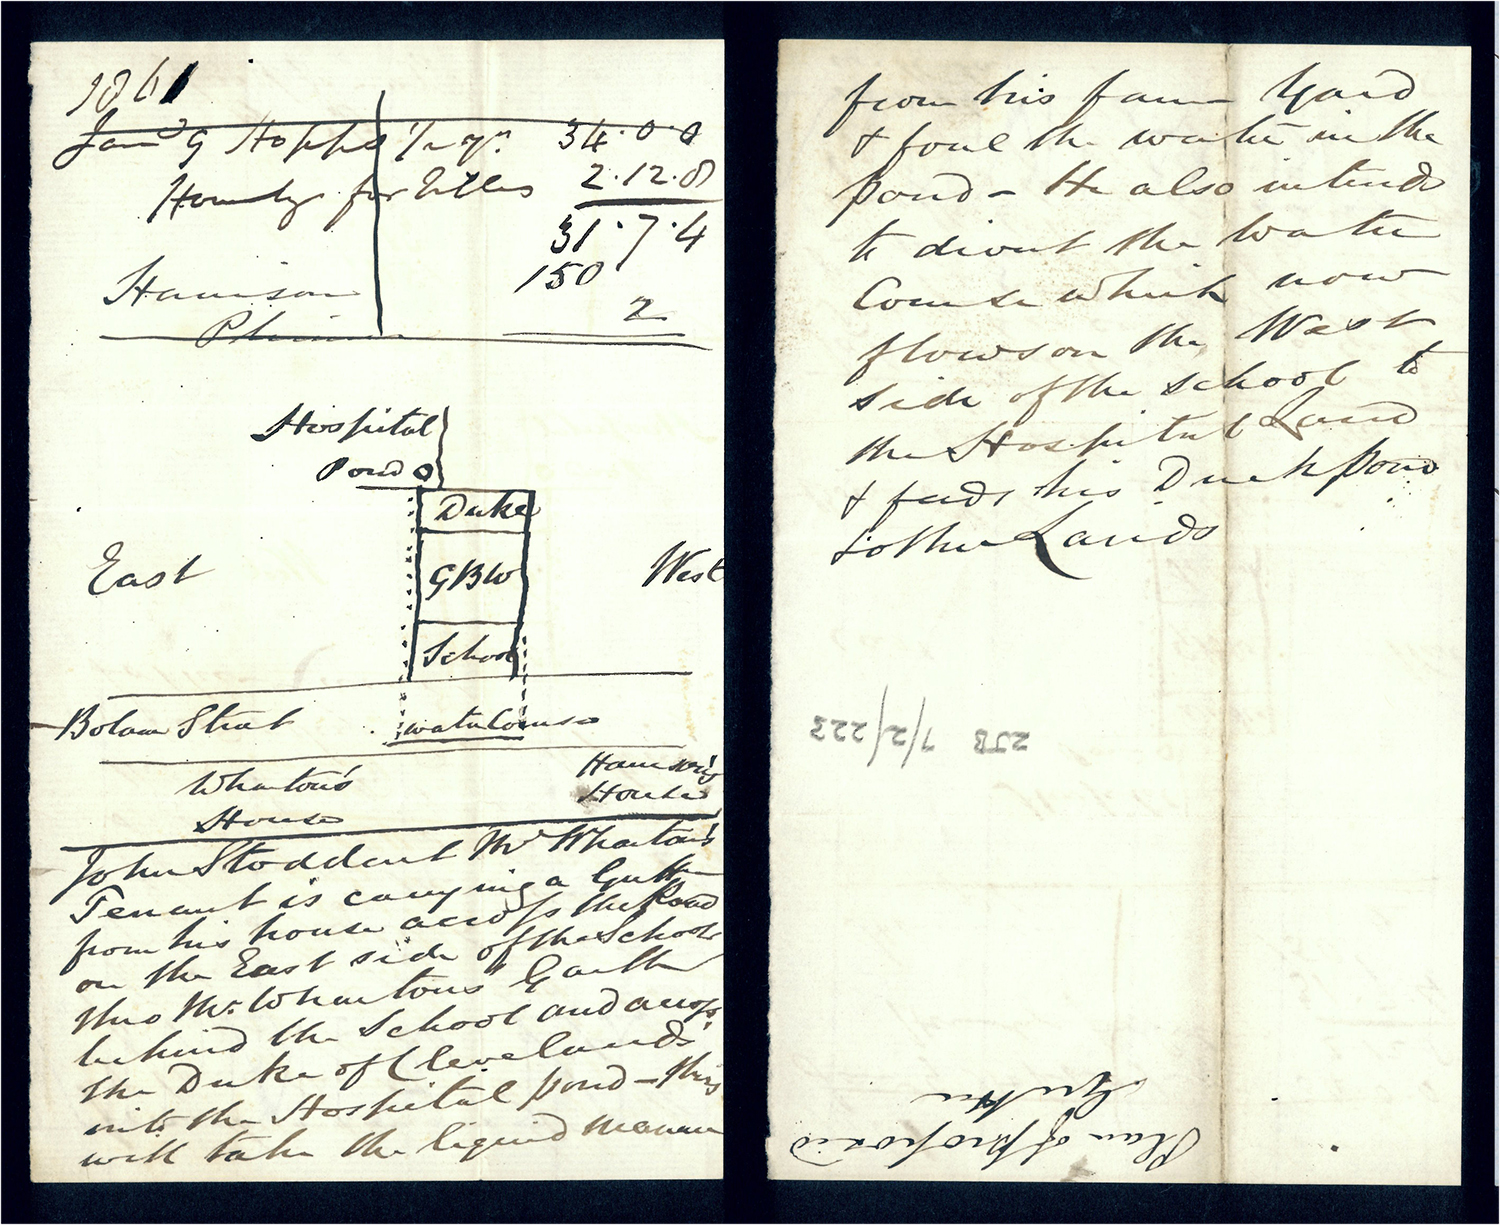 1861
Jany G Hopps ½ yr. 34.0.0
for Tithes 2.12.8
31.7.4
Harrison 150
2
Hospital
Pond
Duke
East GBW West
School
Bolam Street water Course
Wharton's Harrison's
House House
John Stoddart Mr Wharton's
Tenant is carrying a Gutter
from his house across the Road
on the East side of the School
thro Mr. Wharton's Garth
behind the School and across
the Duke of Cleveland's
into the Hospital pond - this
will take the liquid manure
from his farm Yard
& foul the water in the
pond - He also intends
to divert the water
Course which now
flows on the West
side of the school to
the Hospital Land
& feeds his Duck pond
& other Lands
2JB 7/2/223
Plan of proposed
Gutter